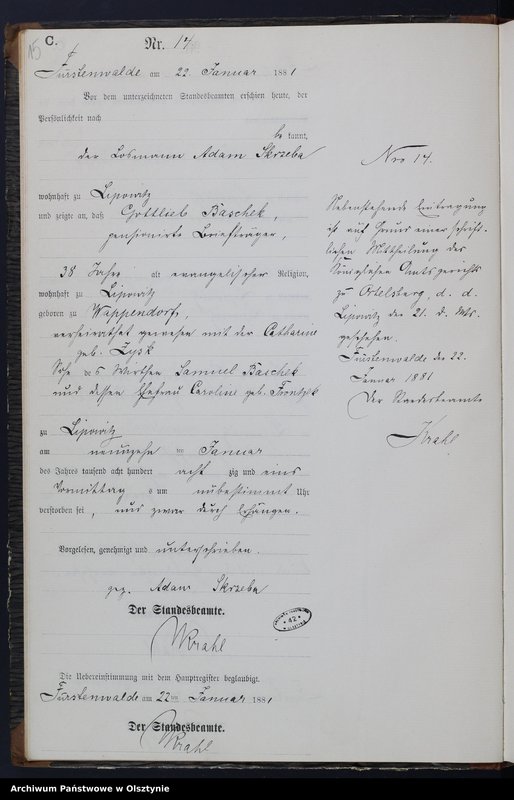 15
C.
Nr. 14
Fürstenwalde am 22 Januar 1881
Vor dem unterzeichneten Standesbeamten erschien heute, der
Persönlichkeit nach
be kannt,
der Losmann Adam Skrzeba
wohnhaft zu Lipowitz
und zeigte an, daß Gottlieb Kaschek,
pensionirte Briefträger,
38 Jahre alt evangelischer Religion,
wohnhaft zu Lipowitz
geboren zu Wappendorf,
verheirathet gewesen mit der Catharine
geb. Zysk
Sohn des Wirthen Samuel Kaschek
und dessen Ehefrau Caroline geb.
zu Lipowitz
am neunzehn ten Januar
des Jahres tausend acht hundert acht zig und eins
Vormittag s um unbestimmt Uhr
verstorben sei, und zwar durch Erhängen.
Vorgelesen, genehmigt und unterschrieben.
gez. Adam Skrzeba
Der Standesbeamte.
Krahl
Die Uebereinstimmung mit dem Hauptregister beglaubigt.
Fürstenwalde am 22 ten Januar 1881
Der Standesbeamte.
Krahl
Nro 14.
Nebenstehende Eintragung
ist auf Grund einer schrift-
lichen Mittheilung des
Königlichen Amtsgerichts
zu Ortelsburg, d. d.
Lipowitz den 21. d. Mts.
geschehen.
Fürstenwalde den 22.
Januar 1881
Der Standesbeamte
Krahl
* 42 *
Archiwum Państwowe w Olsztynie